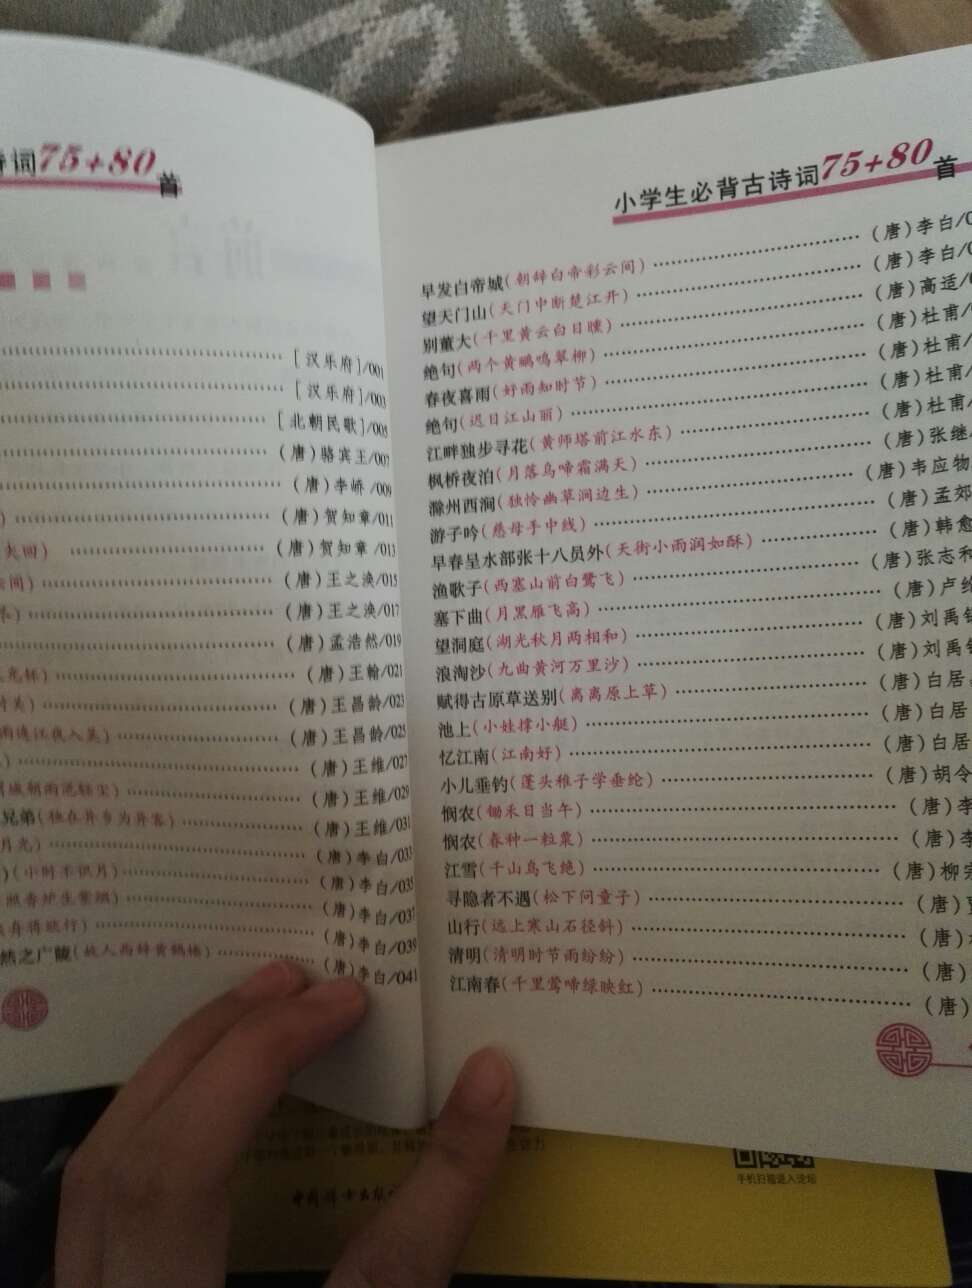 诗词75+80首
[汉乐府]/001
[汉乐府]/003
[北朝民歌]/005
(唐)骆宾王/007
(唐)李峤/009
(唐)贺知章/011
(唐)贺知章/013
(唐)王之涣/015
(唐)王之涣/017
(唐)孟浩然/019
(唐)王翰/021
(唐)王昌龄/023
雨连江夜入吴)(唐)王昌龄/025
(唐)王维/027
城朝雨浥轻尘)(唐)王维/029
兄弟(独在异乡为异客)(唐)王维/031
月光)(唐)李白/033
)(小时不识月)(唐)李白/035
照香炉生紫烟)(唐)李白/037
身将欲行)(唐)李白/039
然之广陵(故人西辞黄鹤楼)(唐)李白/041
小学生必背古诗词75+80首
早发白帝城(朝辞白帝彩云间)(唐)李白/0
望天门山(天门中断楚江开)(唐)李白/0
别董大(千里黄云白日曛)(唐)高适/
绝句(两个黄鹂鸣翠柳)(唐)杜甫/
春夜喜雨(好雨知时节)(唐)杜甫/
绝句(迟日江山丽)(唐)杜甫/
江畔独步寻花(黄师塔前江水东)(唐)杜甫/
枫桥夜泊(月落乌啼霜满天)(唐)张继
滁州西涧(独怜幽草涧边生)(唐)韦应物
游子吟(慈母手中线)(唐)孟郊
早春呈水部张十八员外(天街小雨润如酥)(唐)韩愈
渔歌子(西塞山前白鹭飞)(唐)张志和
塞下曲(月黑雁飞高)(唐)卢纶
望洞庭(湖光秋月两相和)(唐)刘禹锡
浪淘沙(九曲黄河万里沙)(唐)刘禹锡
赋得古原草送别(离离原上草)(唐)白居
池上(小娃撑小艇)(唐)白居
忆江南(江南好)(唐)白居
小儿垂钓(蓬头稚子学垂纶)(唐)胡令
悯农(锄禾日当午)(唐)李
悯农(春种一粒粟)(唐)李
江雪(千山鸟飞绝)(唐)柳宗
寻隐者不遇(松下问童子)(唐)
山行(远上寒山石径斜)(唐)
清明(清明时节雨纷纷)(唐)
江南春(千里莺啼绿映红)(唐)
手机扫描进入论坛